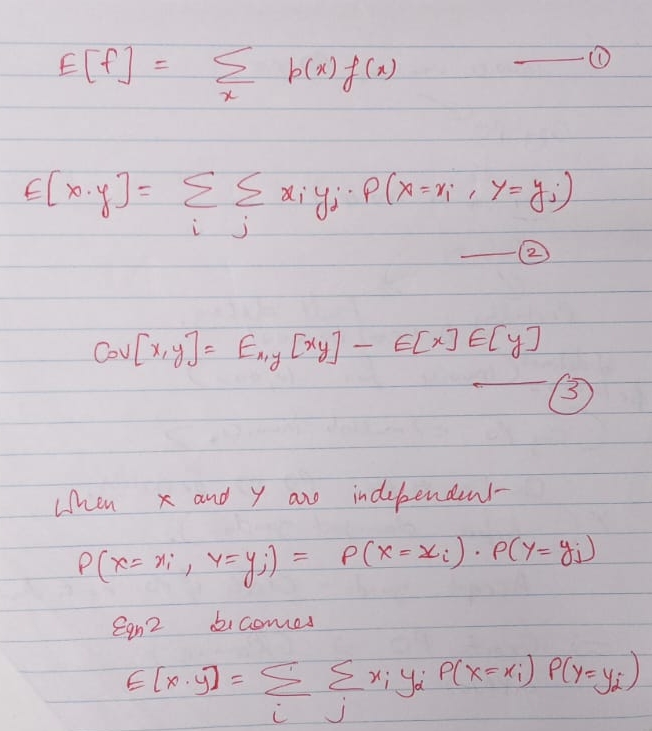 E[f] = Σ_x p(x) f(x) —— ①
E[x.y] = Σ_i Σ_j x_i y_j . P(X=x_i , Y=y_j)
—— ②
Cov[x,y] = E_x,y [xy] − E[x] E[y]
—— ③
When x and y are independent
P(X=x_i , Y=y_j) = P(X=x_i) . P(Y=y_j)
Eqn2 becomes
E[x.y] = Σ_i Σ_j x_i y_j P(X=x_i) P(Y=y_j)